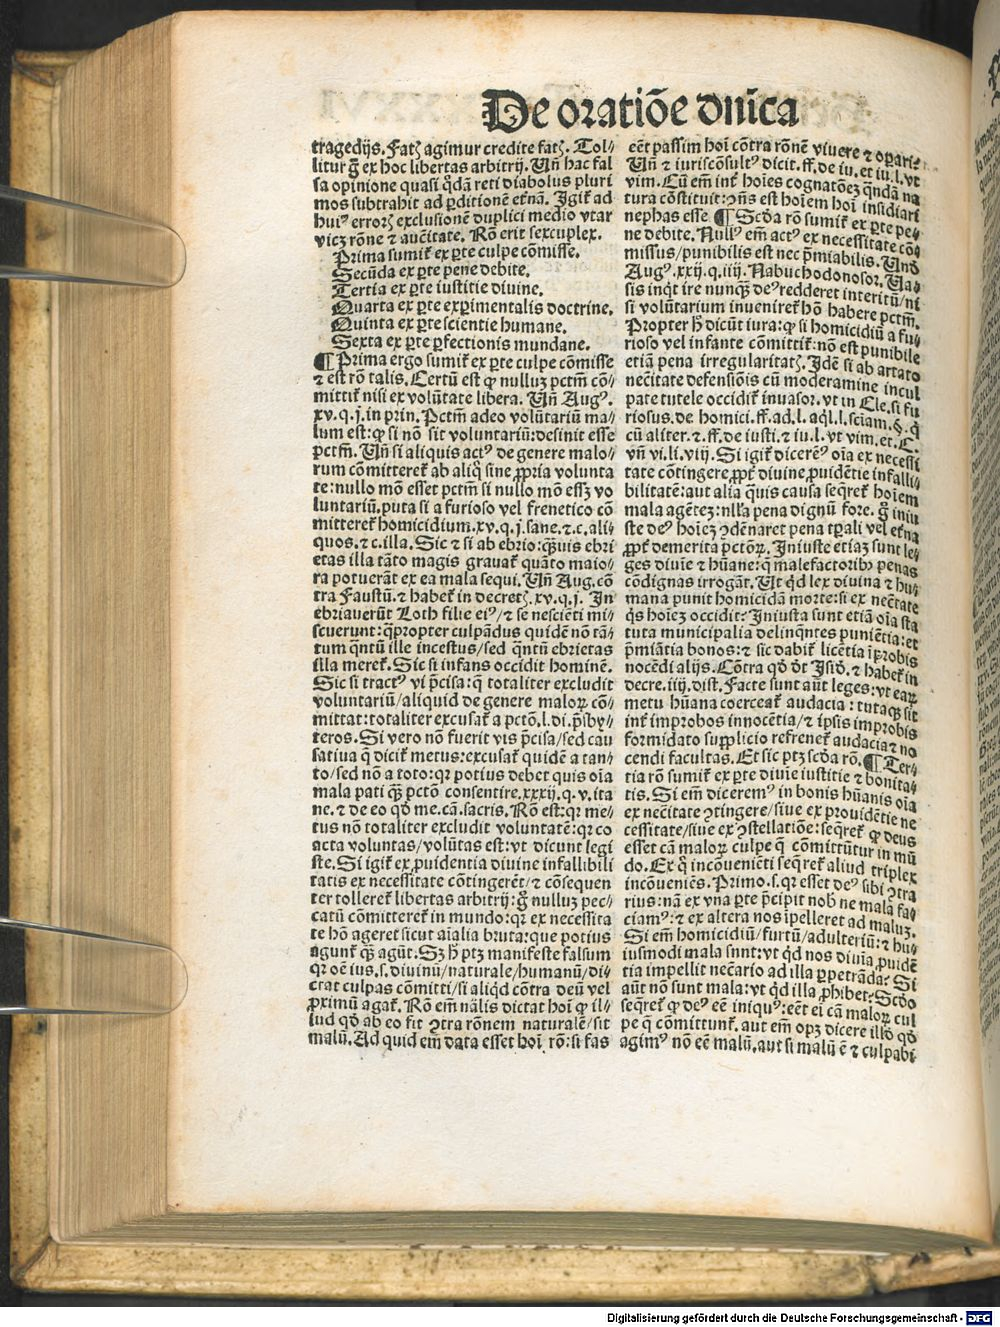 De oratiõe dnĩca
tragedijs. Fatꝭ agimur credite fatꝭ. Tol⸗
litur g̃ ex hoc libertas arbitrij. Uñ hac fal
sa opinione quasi q̃dã reti diabolus pluri
mos subtrahit ad ꝑditionẽ etc̃nã. Igiť ad
huiꝰ erroꝝ exclusionẽ duplici medio vtar
vicꝫ rõne ⁊ auc̃itate. Rõ erit sexcuplex.
Prima sumiť ex ꝑte culpe cõmisse.
Secũda ex ꝑte pene debite.
Tertia ex ꝑte iustitie diuine.
Quarta ex ꝑte exꝑimentalis doctrine.
Quinta ex ꝑte scientie humane.
Sexta ex ꝑte ꝑfectionis mundane.
¶ Prima ergo sumiť ex ꝑte culpe cõmisse
⁊ est rõ talis. Certũ est ꝙ nulluꝫ pctm̃ cõ⸗
mittiť nisi ex volũtate libera. Uñ Augꝰ.
xv. q. j. in prin. Pctm̃ adeo volũtariũ ma⸗
lum est: ꝙ si nõ sit voluntariũ: desinit esse
pctm̃. Uñ si aliquis actꝰ de genere malo⸗
rum cõmittereť ab aliq̃ sine ꝓpria volunta
te: nullo mõ esset pctm̃ si nullo mõ essꝫ vo
luntariũ. puta si a furioso vel frenetico cõ
mittereť homicidium. xv. q. j. sane. ⁊ c. ali⸗
quos. ⁊ c. illa. Sic ⁊ si ab ebrio: q̃ꝫuis ebri
etas illa tãto magis grauať quãto maio⸗
ra potuerãt ex ea mala sequi. Uñ Aug. cõ
tra Faustũ. ⁊ habeť in decretꝭ. xv. q. j. In
ebriauerũt Loth filie eiꝰ/ ⁊ se nescienti mi⸗
scuerunt: q̃propter culpãdus quidẽ nõ tã⸗
tum q̃ntũ ille incestus/ sed q̃ntũ ebrietas
illa mereť. Sic si infans occidit hominẽ.
Sic si tractꝰ vi p̃cisa: q̃ totaliter excludit
voluntariũ/ aliquid de genere maloꝝ cõ⸗
mittat: totaliter excusať a pctõ. l. di. p̃sby⸗
teros. Si vero nõ fuerit vis p̃cisa/ sed cau
satiua q̃ diciť metus: excusať quidẽ a tan⸗
to/ sed nõ a toto: qꝛ potius debet quis oĩa
mala pati q̃ꝫ pctõ consentire. xxxij. q. v. ita
ne. ⁊ de eo qd̃ me. cã. sacris. Rõ est: qꝛ me⸗
tus nõ totaliter excludit voluntatẽ: qꝛ co
acta voluntas/ volũtas est: vt dicunt legi
ste. Si igiť ex ꝓuidentia diuine infallibili
tatis ex necessitate cõtingerẽt/ ⁊ cõsequen
ter tollereť libertas arbitrij: g̃ nulluꝫ pec⸗
catũ cõmittereť in mundo: qꝛ ex necessita
te hõ ageret sicut aĩalia bruta: que potius
agunť q̃ꝫ agũt. Sꝫ h̃ ptꝫ manifeste falsum
qꝛ oẽ ius. s. diuinũ/ naturale/ humanũ/ di⸗
ctat culpas cõmitti/ si aliqd̃ cõtra deũ vel
ꝓximũ agať. Rõ em̃ nãlis dictat hoĩ ꝙ il⸗
lud qd̃ ab eo fit ꝯtra rõnem naturalẽ/ sit
malũ. Ad quid em̃ data esset hoĩ. rõ: si fas
eẽt passim hoĩ cõtra rõnẽ viuere ⁊ oꝑari⸗
Uñ ⁊ iuriscõsultꝰ dicit. ff. de iu. et iu. l. vt
vim. Cũ em̃ inť hoĩes cognatõeꝫ q̃ndã na
tura cõstituit: ꝯñs est hoĩem hoĩ insidiari
nephas esse ¶ Scd̃a rõ sumiť ex ꝑte pe⸗
ne debite. Nullꝰ em̃ actꝰ ex necessitate cõ⸗
missus/ punibilis est nec p̃miabilis. Und̃
Augꝰ. xxij. q. iiij. Nabuchodonosor. Ua⸗
sis inqt̃ ire nunq̃ꝫ deꝰ redderet interitũ/ ni
si volũtarium inuenireť hõ habere pctm̃.
Propter h̃ dicũt iura: ꝙ si homicidiũ a fu⸗
rioso vel infante cõmittiť: nõ est punibile
etiã pena irregularitatꝭ. Idẽ si ab artato
nec̃itate defensiõis cũ moderamine incul
pate tutele occidiť inuasor. vt in Cle. si fu
riosus. de homici. ff. ad. l. aql̃. l. sciam. §. q̃
cũ aliter. ⁊. ff. de iusti. ⁊ iu. l. vt vim. et. C.
vñ vi. li. viij. Si igiť dicerẽꝰ oĩa ex necessi
tate cõtingere ꝓpt̃ diuine ꝓuidẽtie infalli⸗
bilitatẽ: aut alia q̃uis causa seqreť hoĩem
mala agẽteꝫ: nll̃a pena dignũ fore. g̃ iniu
ste deꝰ hoĩeꝫ ꝯdẽnaret pena tꝑali vel etc̃na
ꝓpt̃ demerita pctõꝝ. Iniuste etiaꝫ sunt le⸗
ges diuie ⁊ hũane: q̃ malefactoribꝰ penas
cõdignas irrogãt. Ut qd̃ lex diuina ⁊ hu⸗
mana punit homicidã morte: si ex nec̃tate
q̃s hoĩeꝫ occidit: Iniusta sunt etiã oĩa sta
tuta municipalia delinq̃ntes puniẽtia: et
p̃miãtia bonos: ⁊ sic dabiť licẽtia ĩprobis
nocẽdi alijs. Cõtra qd̃ dt̃ Isid̃. ⁊ habeť in
decre. iiij. dist. Facte sunt aũt leges: vt eaꝝ
metu hũana coerceať audacia: tutaqꝫ sit
inť improbos innocẽtia/ ⁊ ipsis improbis
formidato supplicio refreneť audacia ⁊ no
cendi facultas. Et sic ptꝫ scd̃a rõ. ¶ Ter⸗
tia rõ sumiť ex ꝑte diuie iustitie ⁊ bonita⸗
tis. Si em̃ diceremꝰ in bonis hũanis oĩa
ex nec̃itate ꝯtingere/ siue ex prouidẽtie ne
cessitate/ siue ex ꝯstellatiõe: seqreť ꝙ deus
esset cã maloꝝ culpe q̃ cõmittũtur in mũ
do. Ex q̃ incõueniẽti seqreť aliud triplex
incõueniẽs. Primo. s. qꝛ esset deꝰ sibi ꝯtra
rius: nã ex vna ꝑte p̃cipit nob̃ ne mala fa⸗
ciamꝰ: ⁊ ex altera nos ĩpelleret ad maluꝫ.
Si em̃ homicidiũ/ furtũ/ adulteriũ: ⁊ hu⸗
iusmodi mala snnt: vt qd̃ nos diuĩa ꝓuidẽ
tia impellit nec̃ario ad illa ꝑpetrãda: Si
aũt nõ sunt mala: vt qd̃ illa ꝓhibet: Scd̃o
seqreť ꝙ deꝰ eẽ iniquꝰ: eẽt ei cã maloꝝ cul
pe q̃ cõmittunť. aut em̃ opꝫ dicere illd̃ qd̃
agimꝰ nõ eẽ malũ. aut si malũ ẽ ⁊ culpabi
Digitalisierung gefördert durch die Deutsche Forschungsgemeinschaft - DFG